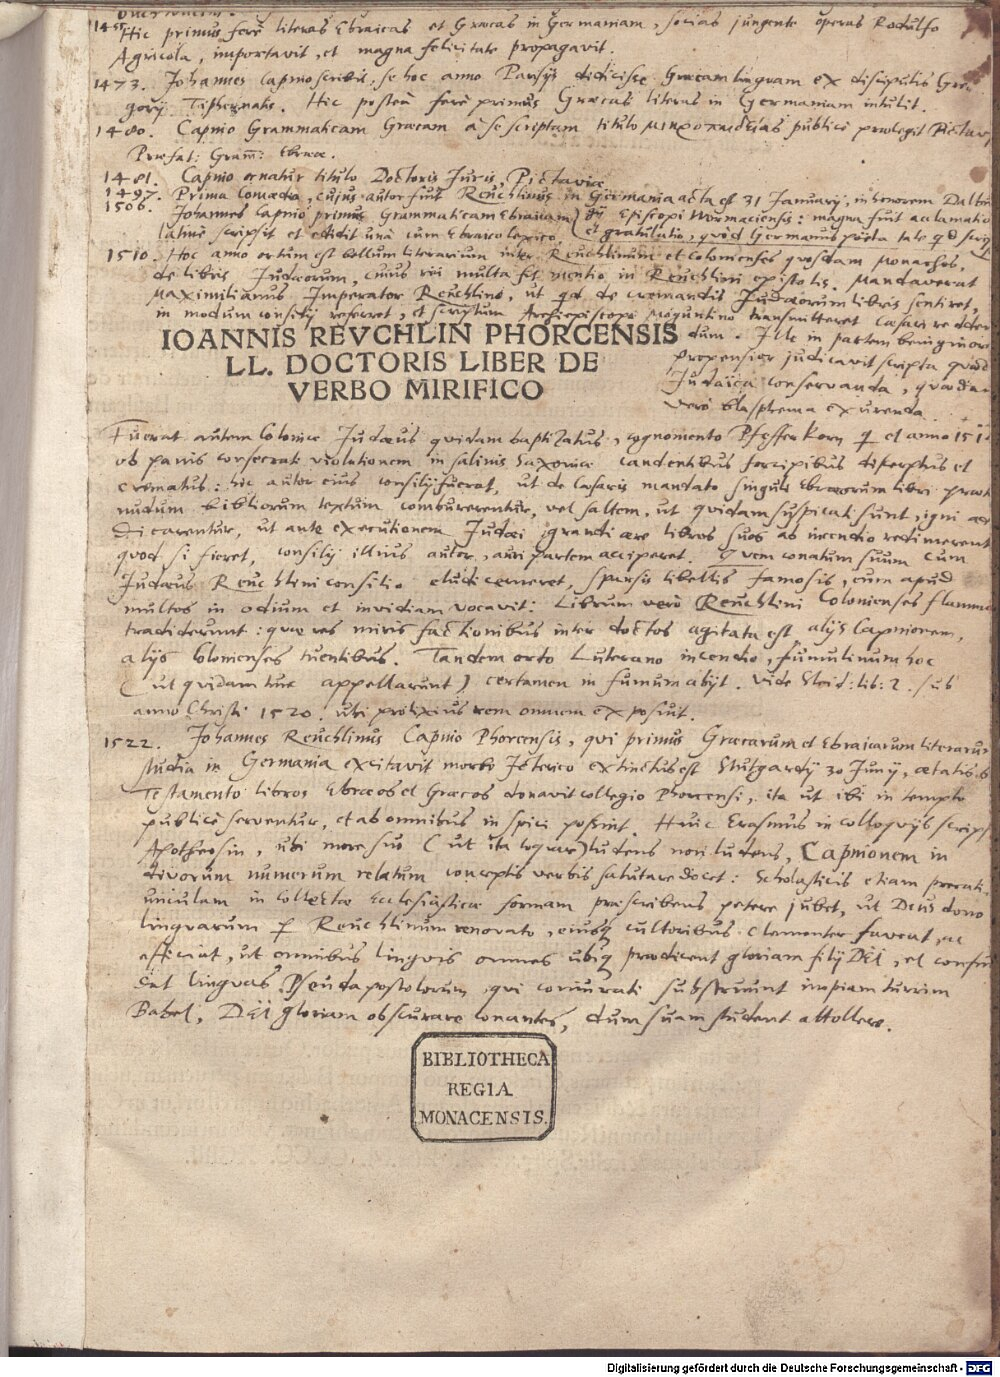 1455. Hic primus ferè literas Ebraicas et Græcas in Germaniam, socias jungente operas Rodulfo
Agricola, importavit, et magna felicitate propagavit.
1473. Johannes Capnio scribit, se hoc anno Parisijs didicisse Græcam linguam ex discipulis Gre-
gorij Tiphernatis. Hic posteà ferè primus Græcas literas in Germaniam intulit.
1480. Capnio Grammaticam Græcam à se scriptam titulo publicè prælegit
Præfat: Gram: Ebraæ.
1481. Capnio ornatur titulo Doctoris Juris, Pictaviæ
1497. Prima Comœdia, cujus autor fuit Reuchlinus in Germania acta est 31 Januarij, in honorem Dalbur
1506. Johannes Capnio primus Grammaticam Ebraicam gij Episcopi Wormaciensis: magna fuit acclamatio
latinè scripsit et edidit unà cum Ebraico lexico. et gratulatio, quòd Germanus poëta tale qd scrip
1510. Hoc anno ortum est bellum literarium inter Reuchlinum et Colonienses quosdam Monachos,
de libris Judæorum, cuius rei multa fit mentio in Reuchlini epistolis. Mandaverat
Maximilianus Imperator Reuchlino, ut qd. de cremandis Judæorum libris sentiret,
in modum consilij referret, et scriptum Archiepiscopo Moguntino transmitteret Cæsari redden
dum. Ille in partem benigniore
IOANNIS REVCHLIN PHORCENSIS
propensior judicavit scripta quæd
LL. DOCTORIS LIBER DE
Judaica conservanda, quædam
VERBO MIRIFICO
verò blasphema exurenda
Fuerat autem Coloniæ Judæus quidam baptizatus, cognomento Pfefferkorn q et anno 151
ob panis consecrati violationem in salinis Saxoniæ candentibus forcipibus discerptus et
crematus: hic autor eius consilij fuerat, ut de Cæsaris mandato singuli Ebræorum libri præter
nudum bibliorum textum comburerentur, vel saltem, ut quidam suspicati sunt, igni ad
dicarentur, ut ante executionem Judæi grandi ære libros suos ab incendio redimerent
quod si fieret, consilij illius autor, auri partem acciperet. Quem conatum suum cum
Judæus Reuchlini consilio eludi cerneret, sparsis libellis famosis, eum apud
multos in odium et invidiam vocavit: Librum verò Reuchlini Colonienses flammæ
tradiderunt: quæ res miris factionibus inter doctos agitata est alijs Capnionem,
alijs Colonienses tuentibus. Tandem orto Luterano incendio, fumulinum hoc
(ut quidam tuc appellarunt) certamen in fumum abijt. Vide Sleid: lib: 2. sub
anno Christi 1520. ubi prolixius rem omnem exposuit.
1522. Johannes Reuchlinus Capnio Phorcensis, qui primus Græcarum et Ebraicarum literarum
studia in Germania excitavit morbo Icterico extinctus est Stutgardiæ 30 Junij, ætatis
Testamento libros Ebræos et Græcos donavit collegio Phorcensi, ita ut ibi in templo
publicè serventur, et ab omnibus inspici possint. Huic Erasmus in colloquijs scrips
Apotheosin, ubi more suo (ut ita loquar) ludens non ludens, Capnionem in
divorum numerum relatum conceptis verbis salutare docet: Scholasticis etiam precati-
unculam in collectæ Ecclesiasticæ formam præscribens petere jubet, ut Deus dono
linguarum p Reuchlinum renovato, eiusq cultoribus clementer faveat, ac
efficiat, ut omnibus linguis omnes ubiq prædicent gloriam filij DEI, et confun
dat linguas Pseudapostolorum, qui coniurati substruunt impiam turrim
Babel, DEI gloriam obscurare conantes, dum suam student attollere.
BIBLIOTHECA
REGIA
MONACENSIS.
Digitalisierung gefördert durch die Deutsche Forschungsgemeinschaft - DFG